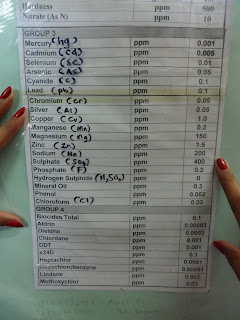 Hardness ppm 500
Nitrate (As N) ppm 10
GROUP 3
Mercury (hg) ppm 0.001
Cadmium (Cd) ppm 0.005
Selenium (SE) ppm 0.01
Arsenic (AS) ppm 0.05
Cyanide (C) ppm 0.1
Lead (pb) ppm 0.1
Chromium (Cr) ppm 0.05
Silver (Al) ppm 0.05
Copper (Cu) ppm 1.0
Manganese (Mn) ppm 0.2
Magnesium (Mg) ppm 150
Zinc (Zn) ppm 1.5
Sodium (Na) ppm 200
Sulphate (SO4) ppm 400
Phosphate (F) ppm 0.2
Hydrogen Sulphide (H2SO4) ppm 0
Mineral Oil ppm 0.3
Phenol ppm 0.002
Chloroform (Cl) ppm 0.03
GROUP 4
Biocides Total ppm 0.1
Aldrin ppm 0.00003
Dieldrin ppm 0.0003
Chlordane ppm 0.001
DDT ppm 0.001
ppm 0.1
Heptachlor ppm 0.0001
ppm 0.00001
Lindane ppm 0.003
ppm 0.03